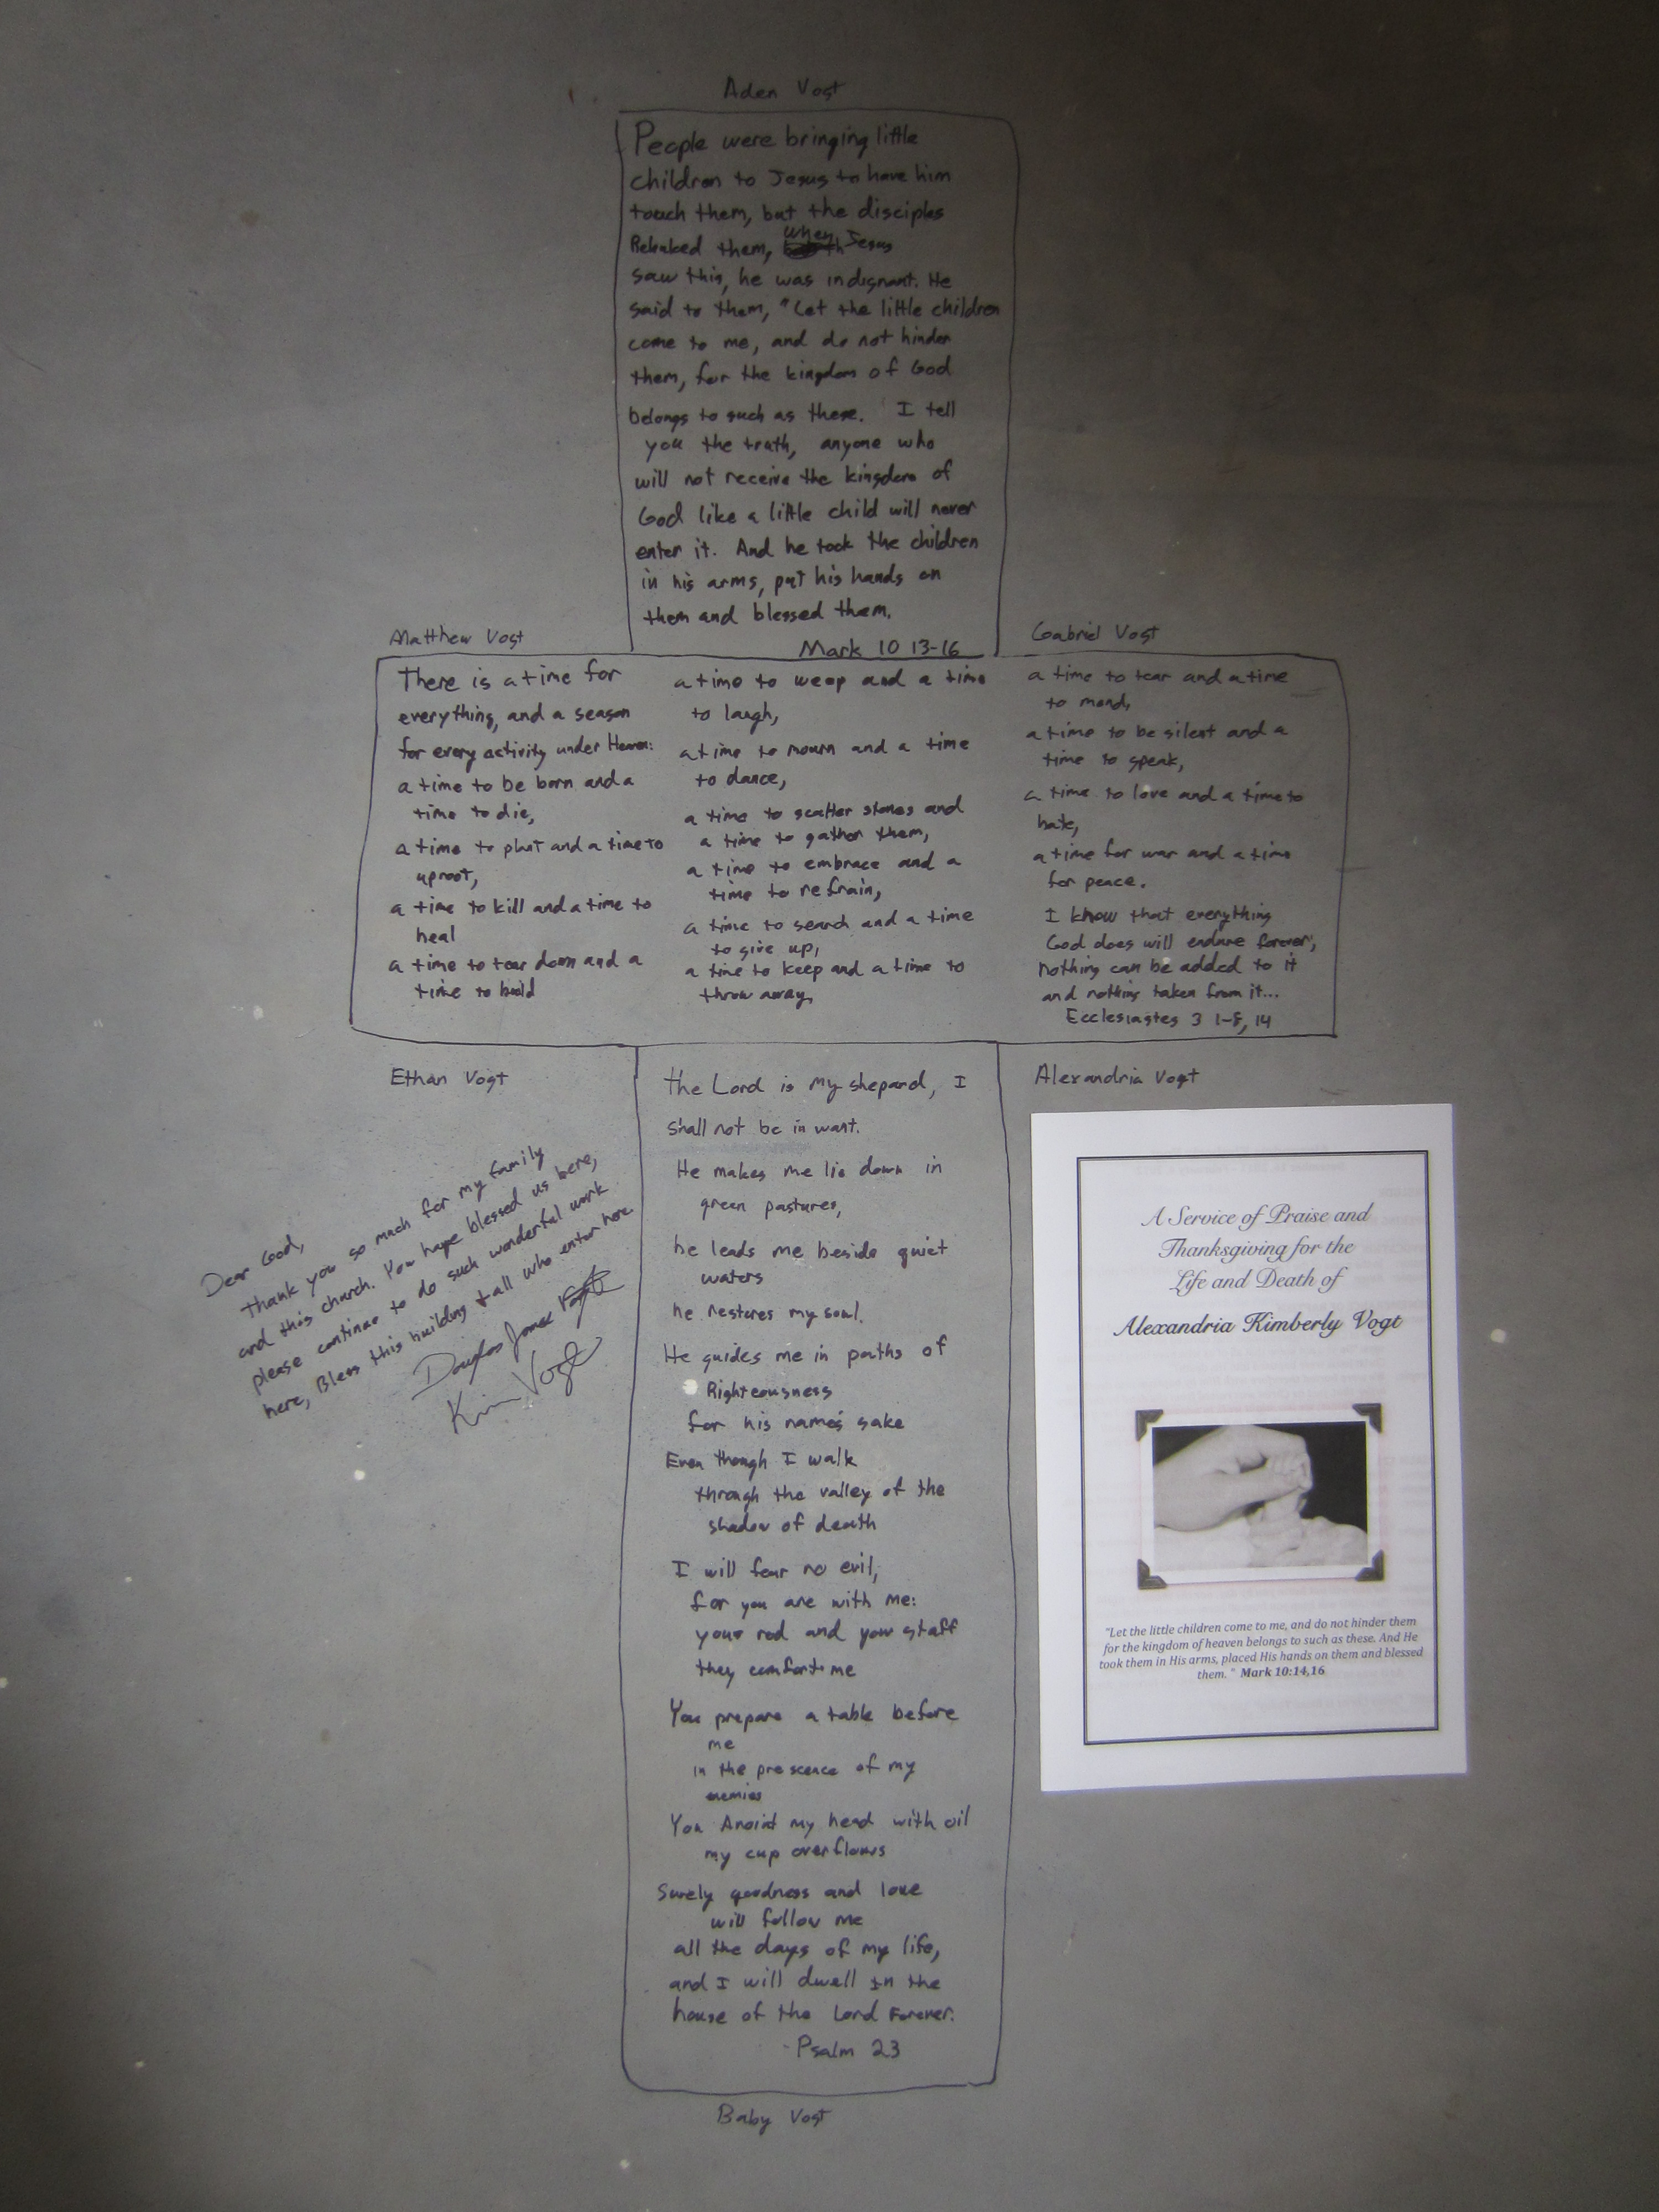 Aden Vogt
People were bringing little
children to Jesus to have him
touch them, but the disciples
Rebuked them, when Jesus
saw this, he was indignant. He
said to them, "Let the little children
come to me, and do not hinder
them, for the kingdom of God
belongs to such as these. I tell
you the truth, anyone who
will not receive the kingdom of
God like a little child will never
enter it. And he took the children
in his arms, put his hands on
them and blessed them.
Mark 10 13-16
Matthew Vogt
There is a time for
everything, and a season
for every activity under Heaven:
a time to be born and a
time to die,
a time to plant and a time to
uproot,
a time to kill and a time to
heal
a time to tear down and a
time to build
a time to weep and a time
to laugh,
a time to mourn and a time
to dance,
a time to scatter stones and
a time to gather them,
a time to embrace and a
time to refrain,
a time to search and a time
to give up,
a time to keep and a time to
throw away,
Gabriel Vogt
a time to tear and a time
to mend,
a time to be silent and a
time to speak,
a time to love and a time to
hate,
a time for war and a time
for peace.
I know that everything
God does will endure forever,
nothing can be added to it
and nothing taken from it...
Ecclesiastes 3 1-8, 14
Ethan Vogt
Dear God,
thank you so much for my family
and this church. You have blessed us here,
please continue to do such wonderful work
here, Bless this building & all who enter here
Douglas James Vogt
Kim Vogt
the Lord is my shepard, I
shall not be in want.
He makes me lie down in
green pastures,
he leads me beside quiet
waters
he restores my soul.
He guides me in paths of
Righteousness
for his name's sake
Even though I walk
through the valley of the
shadow of death
I will fear no evil,
for you are with me:
your rod and your staff
they comfort me
You prepare a table before
me
in the prescence of my
enemies
You Anoint my head with oil
my cup overflows
Surely goodness and love
will follow me
all the days of my life,
and I will dwell in the
house of the Lord Forever.
Psalm 23
Baby Vogt
Alexandria Vogt
A Service of Praise and
Thanksgiving for the
Life and Death of
Alexandria Kimberly Vogt
"Let the little children come to me, and do not hinder them
for the kingdom of heaven belongs to such as these. And He
took them in His arms, placed His hands on them and blessed
them." Mark 10:14,16